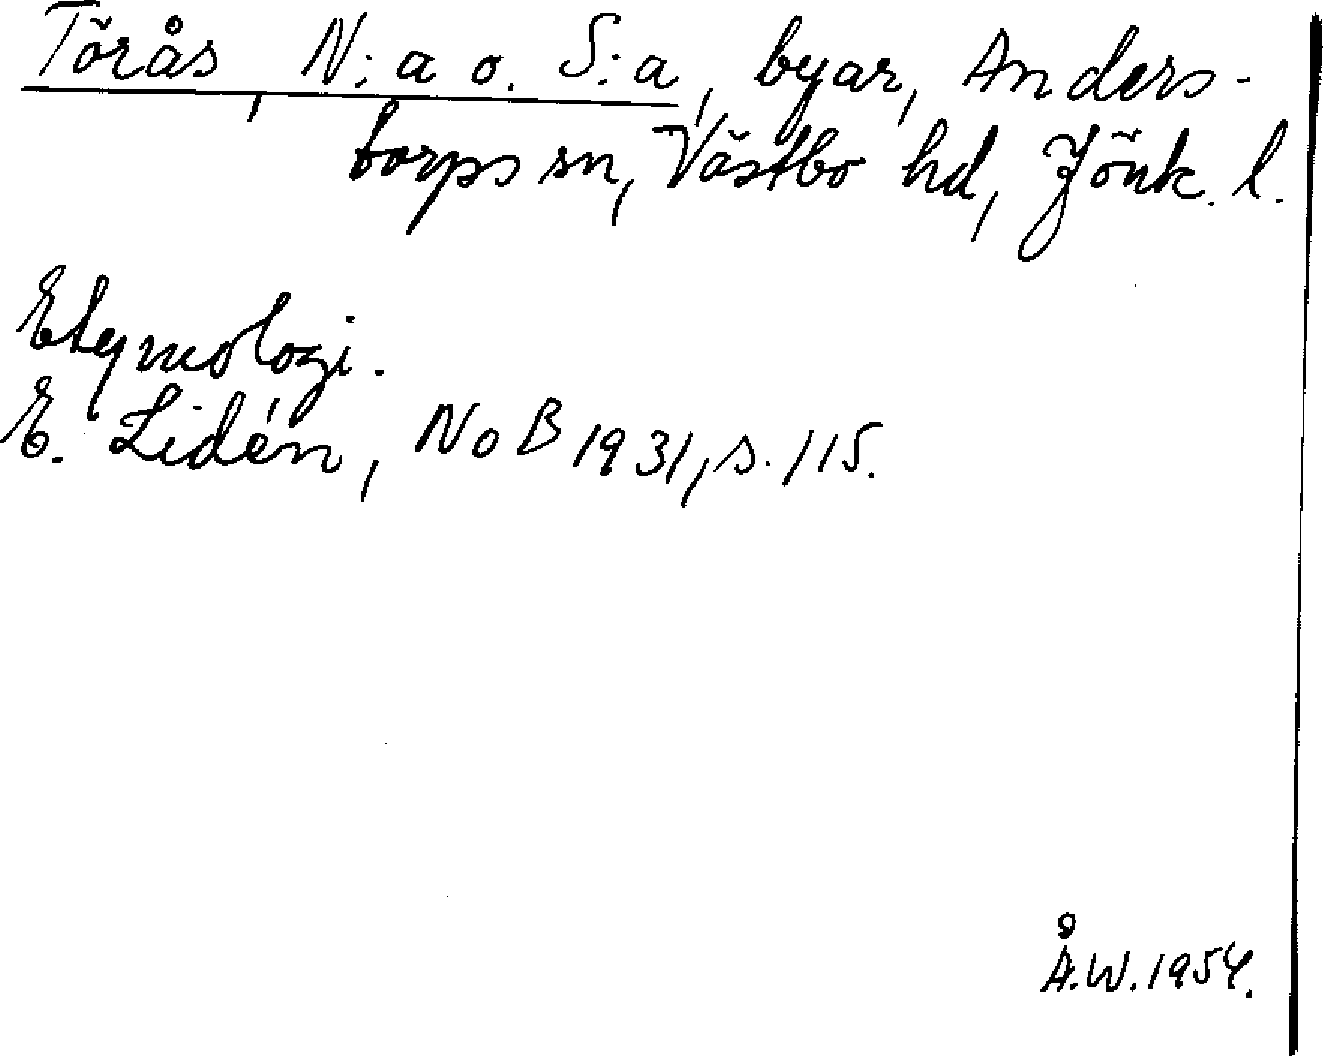 Törås, N:a o. S:a, byar, Anders-
torps sn, Västbo hd, Jönk. l.
Etymologi.
E. Lidén, NoB 1931, s. 115.
Å.W. 1954.